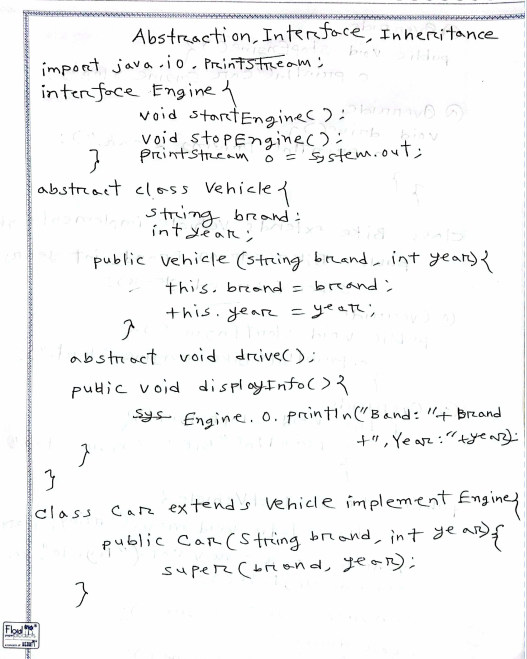 Abstraction, Interface, Inheritance
import java.io.PrintStream;
interface Engine {
void startEngine();
void stopEngine();
PrintStream o = System.out;
}
abstract class Vehicle {
string brand;
int year;
public vehicle (string brand, int year) {
this.brand = brand;
this.year = year;
}
abstract void drive();
public void displayInfo() {
Sys Engine.o.println("Band: "+ brand
+", Year: "+year);
}
}
class Car extends Vehicle implement Engine {
public Car (String brand, int year) {
super (brand, year);
}